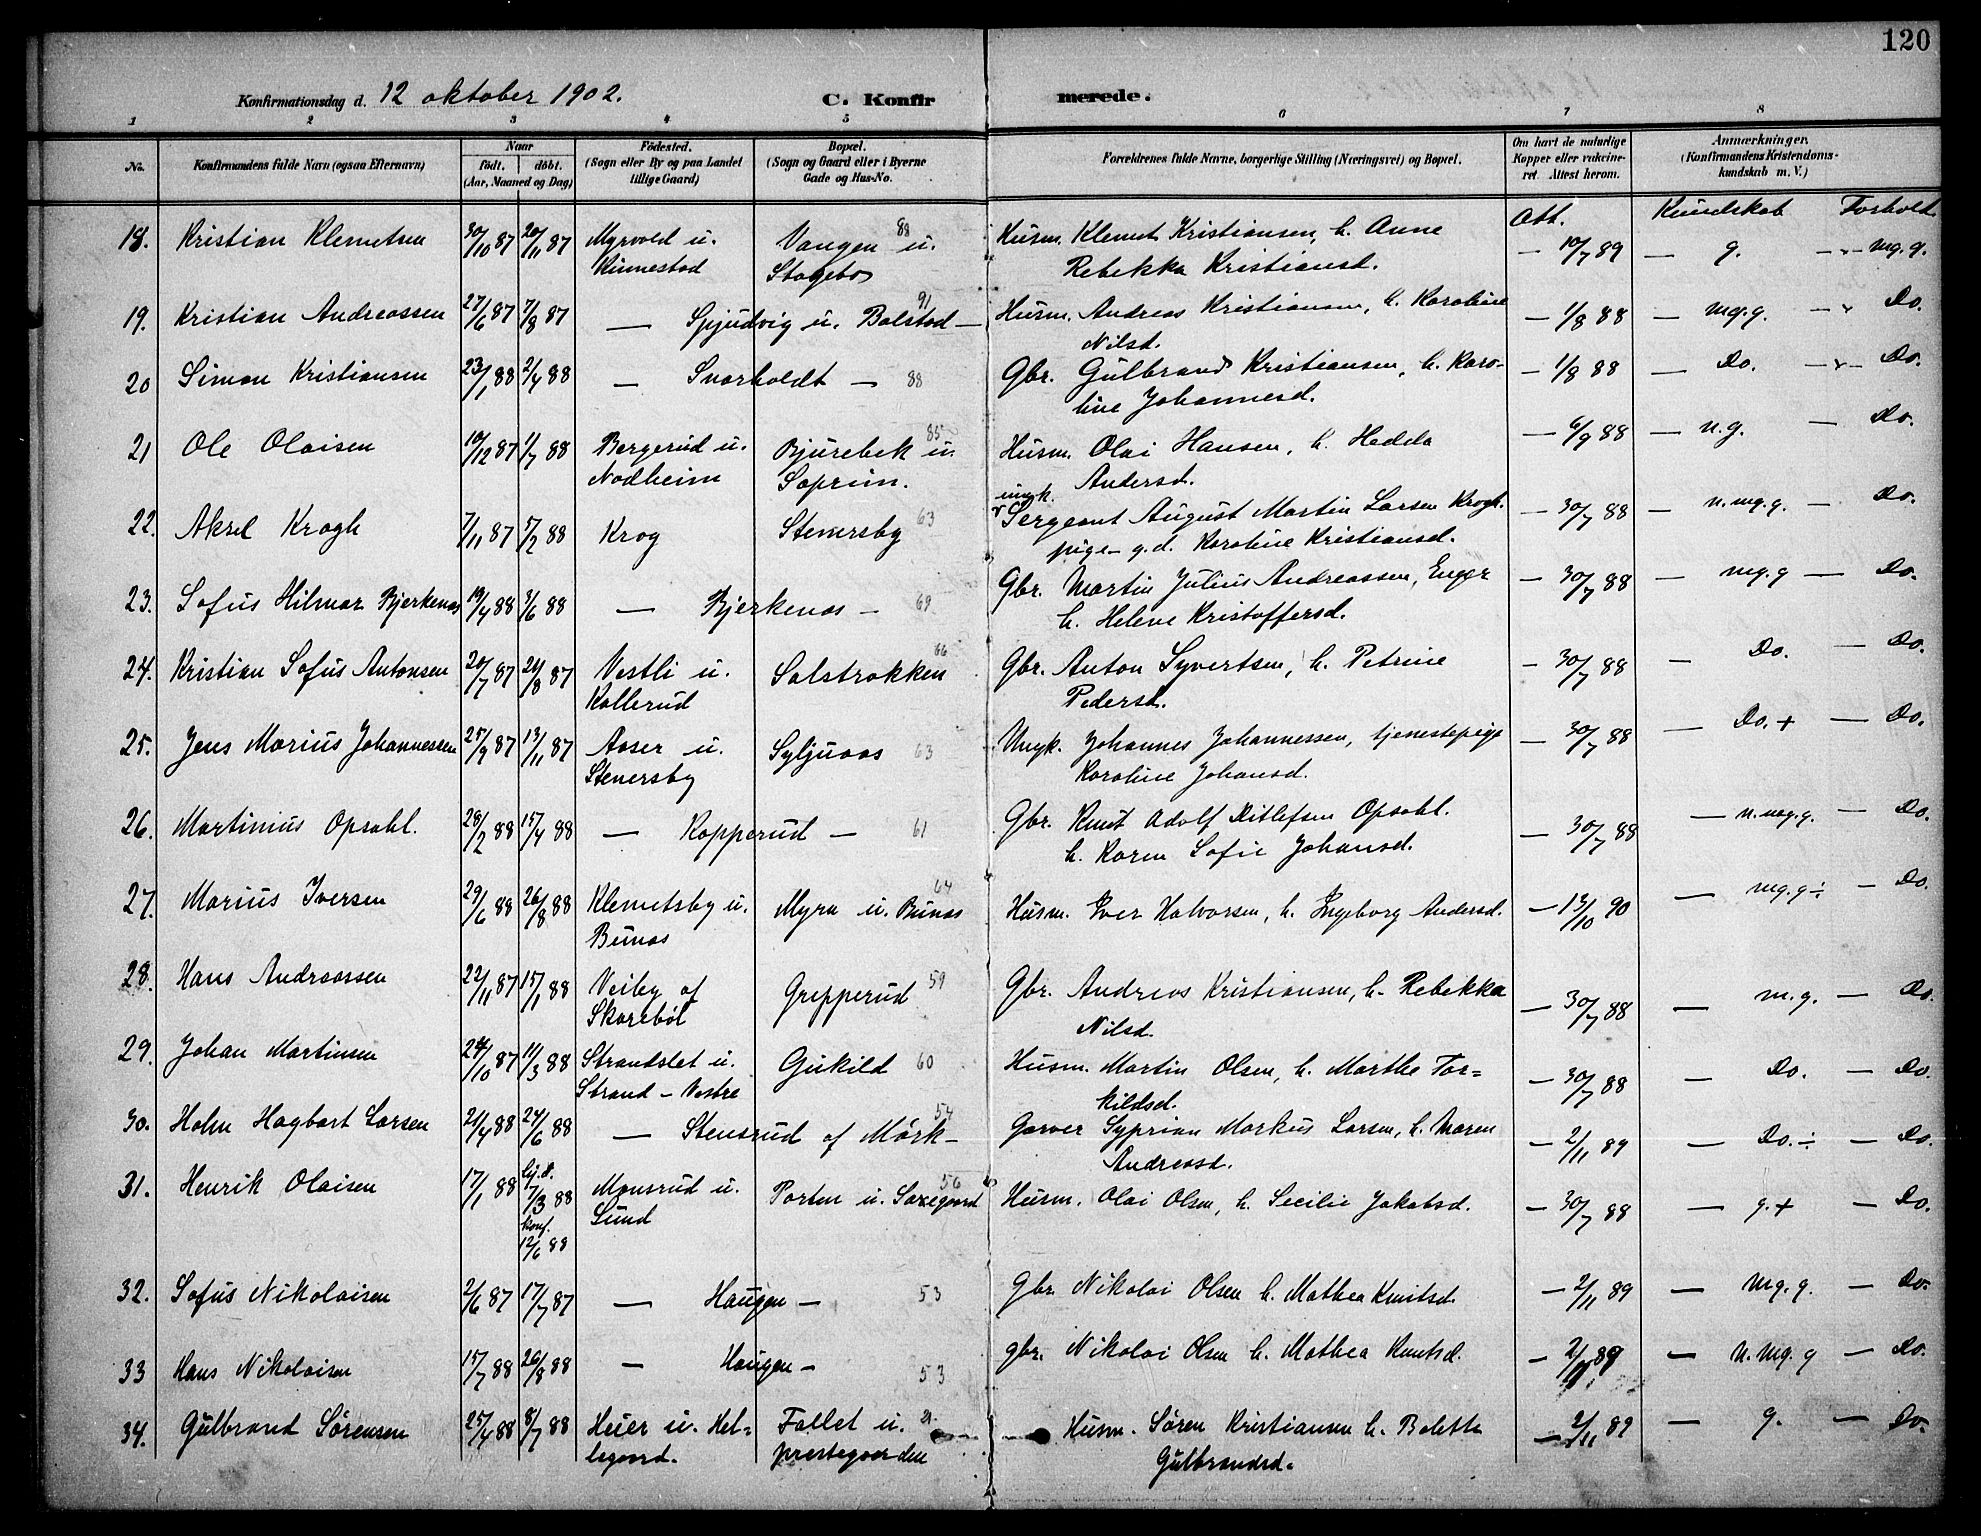 120
Konfirmationsdag d. 12 oktober 1902. C. Konfir merede.
1 2 3 4 5 6 7 8
No. Konfirmandens fulde Navn (ogsaa Efternavn) Naar født. døbt. (Aar, Maaned og Dag) Fødested. (Sogn eller By og paa Landet tillige Gaard) Bopæl. (Sogn og Gaard eller i Byerne Gade og Hus-No. Forældrenes fulde Navne, borgerlige Stilling (Næringsvei) og Bopæl. Om havt de naturlige Kopper eller vakcineret. Attest herom. Anmærkninger. (Konfirmandens Kristendomskundskab m. V.)
Att. Kundskab Forhold
18. Kristian Klemetsen 30/10 87 20/11 87 Myrvold u. Vangen u. 88 Husm. Klemet Kristiansen, h. Anne — 10/7 89 — g. — mg.g.
Kinnestad Stagebo Rebekka Kristiansd.
19. Kristian Andreassen 27/6 87 7/8 87 — Spjudvig u. Bolstad — 91 Husm. Andreas Kristiansen, h. Karoline — 1/8 88 — mg.g. — Do.
Nilsd.
20 Simon Kristiansen 23/1 88 2/4 88 — Svarholdt — 88 Gbr. Gulbrand Kristiansen, h. Karo- — 1/8 88 — Do. — Do.
line Johannesd.
21 Ole Olaisen 10/12 87 1/7 88 Bergerud u. Bjurebek u. 85 Husm. Olai Hansen, h. Hedda — 6/9 88 — n.g. Do.
Nodheim Soprim. Andersd.
22. Aksel Krogh 7/11 87 5/2 88 Krog Stenersby 63 ungk. Sergeant August Martin Larsen Krogh. — 30/7 88 — n.mg.g. — Do.
pige- g.d. Karoline Kristiansd.
23. Sofus Hilmar Bjerkenas 19/4 88 3/6 88 — Bjerkenas — 69 Gbr. Martin Julius Andreassen, Enger — 30/7 88 — mg.g — Do.
h. Helene Kristoffersd.
24. Kristian Sofus Antonsen 20/7 87 21/8 87 Vestli u. Solstrokken 66 Gbr. Anton Syvertsen, h. Petrine — 30/7 88 — Do. — Do.
Kollerud Pedersd.
25. Jens Marius Johannessen 25/9 87 13/11 87 Aaser u. Syljuaas 63 Ungk. Johannes Johannessen, tjenestepige — 30/7 88 — Do. + — Do.
Stenersby Karoline Johansd.
26. Martinius Opsahl. 28/2 88 15/4 88 — Kopperud — 61 Gbr. Knut Adolf Ditlefsen Opsahl. — 30/7 88 — n.mg.g. — Do.
h. Karen Sofie Johansd.
27. Marius Iversen 29/6 88 26/8 88 Klemetsby u. Myra u. Bunas 64 Husm. Iver Halvorsen, h. Ingeborg Andersd. — 13/10 90 — mg.g ÷ — Do.
Bunas
28. Hans Andreassen 22/11 87 15/1 88 Veiby af Gripperud 59 Gbr. Andreas Kristiansen, h. Rebekka — 30/7 88 — m.g. — Do.
Skarebøl Nilsd.
29. Johan Martinsen 24/10 87 11/3 88 Strandslet u. Gukild 60 Husm. Martin Olsen, h. Marthe Tor= — 30/7 88 — Do. — Do.
Strand - Vestre kildsd.
30. Holm Hagbart Larsen 21/4 88 24/6 88 — Stensrud af Mörk — 54 Garver Syprian Markus Larsen, h. Maren — 2/11 89 — Do. ÷ — Do.
Andreasd.
31. Henrik Olaisen 17/1 88 hj.d. 7/3 88 Monsrud u. Porten u. Saxegaard 56 Husm. Olai Olsen, h. Secilie Jakobsd. — 30/7 88 — g. + — Do.
konf. 12/6 88 Sund
32. Sofus Nikolaisen 2/6 87 17/7 87 — Haugen — 53 Gbr. Nikolai Olsen h. Mathea Knutsd. — 2/11 89 — mg.g. — Do.
33 Hans Nikolaisen 15/7 88 26/8 88 — Haugen — 53 gbr. Nikolai Olsen h. Mathea Knutsd. — 2/11 89 — n.mg.g — Do.
34. Gulbrand Sörensen 25/4 88 8/7 88 Heier u. Hel= Fallet u. 21. Husm. Sören Kristiansen h. Bolette — 2/11 89 — g. — Do.
legaard. prestegaarden Gulbrandsd.